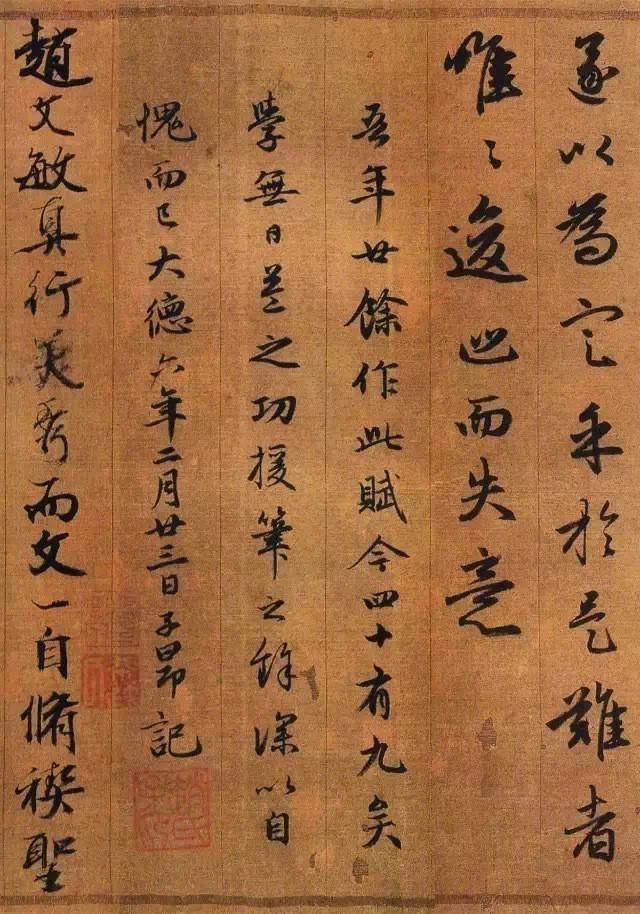 遂以為定乎於是難者
惟〻逡巡而失意
吾年廿餘作此賦今四十有九矣
學無日益之功援筆之餘深以自
愧而已大德六年二月廿三日子昂記
趙氏子昂
趙文敏真行美秀而文一自脩禊聖